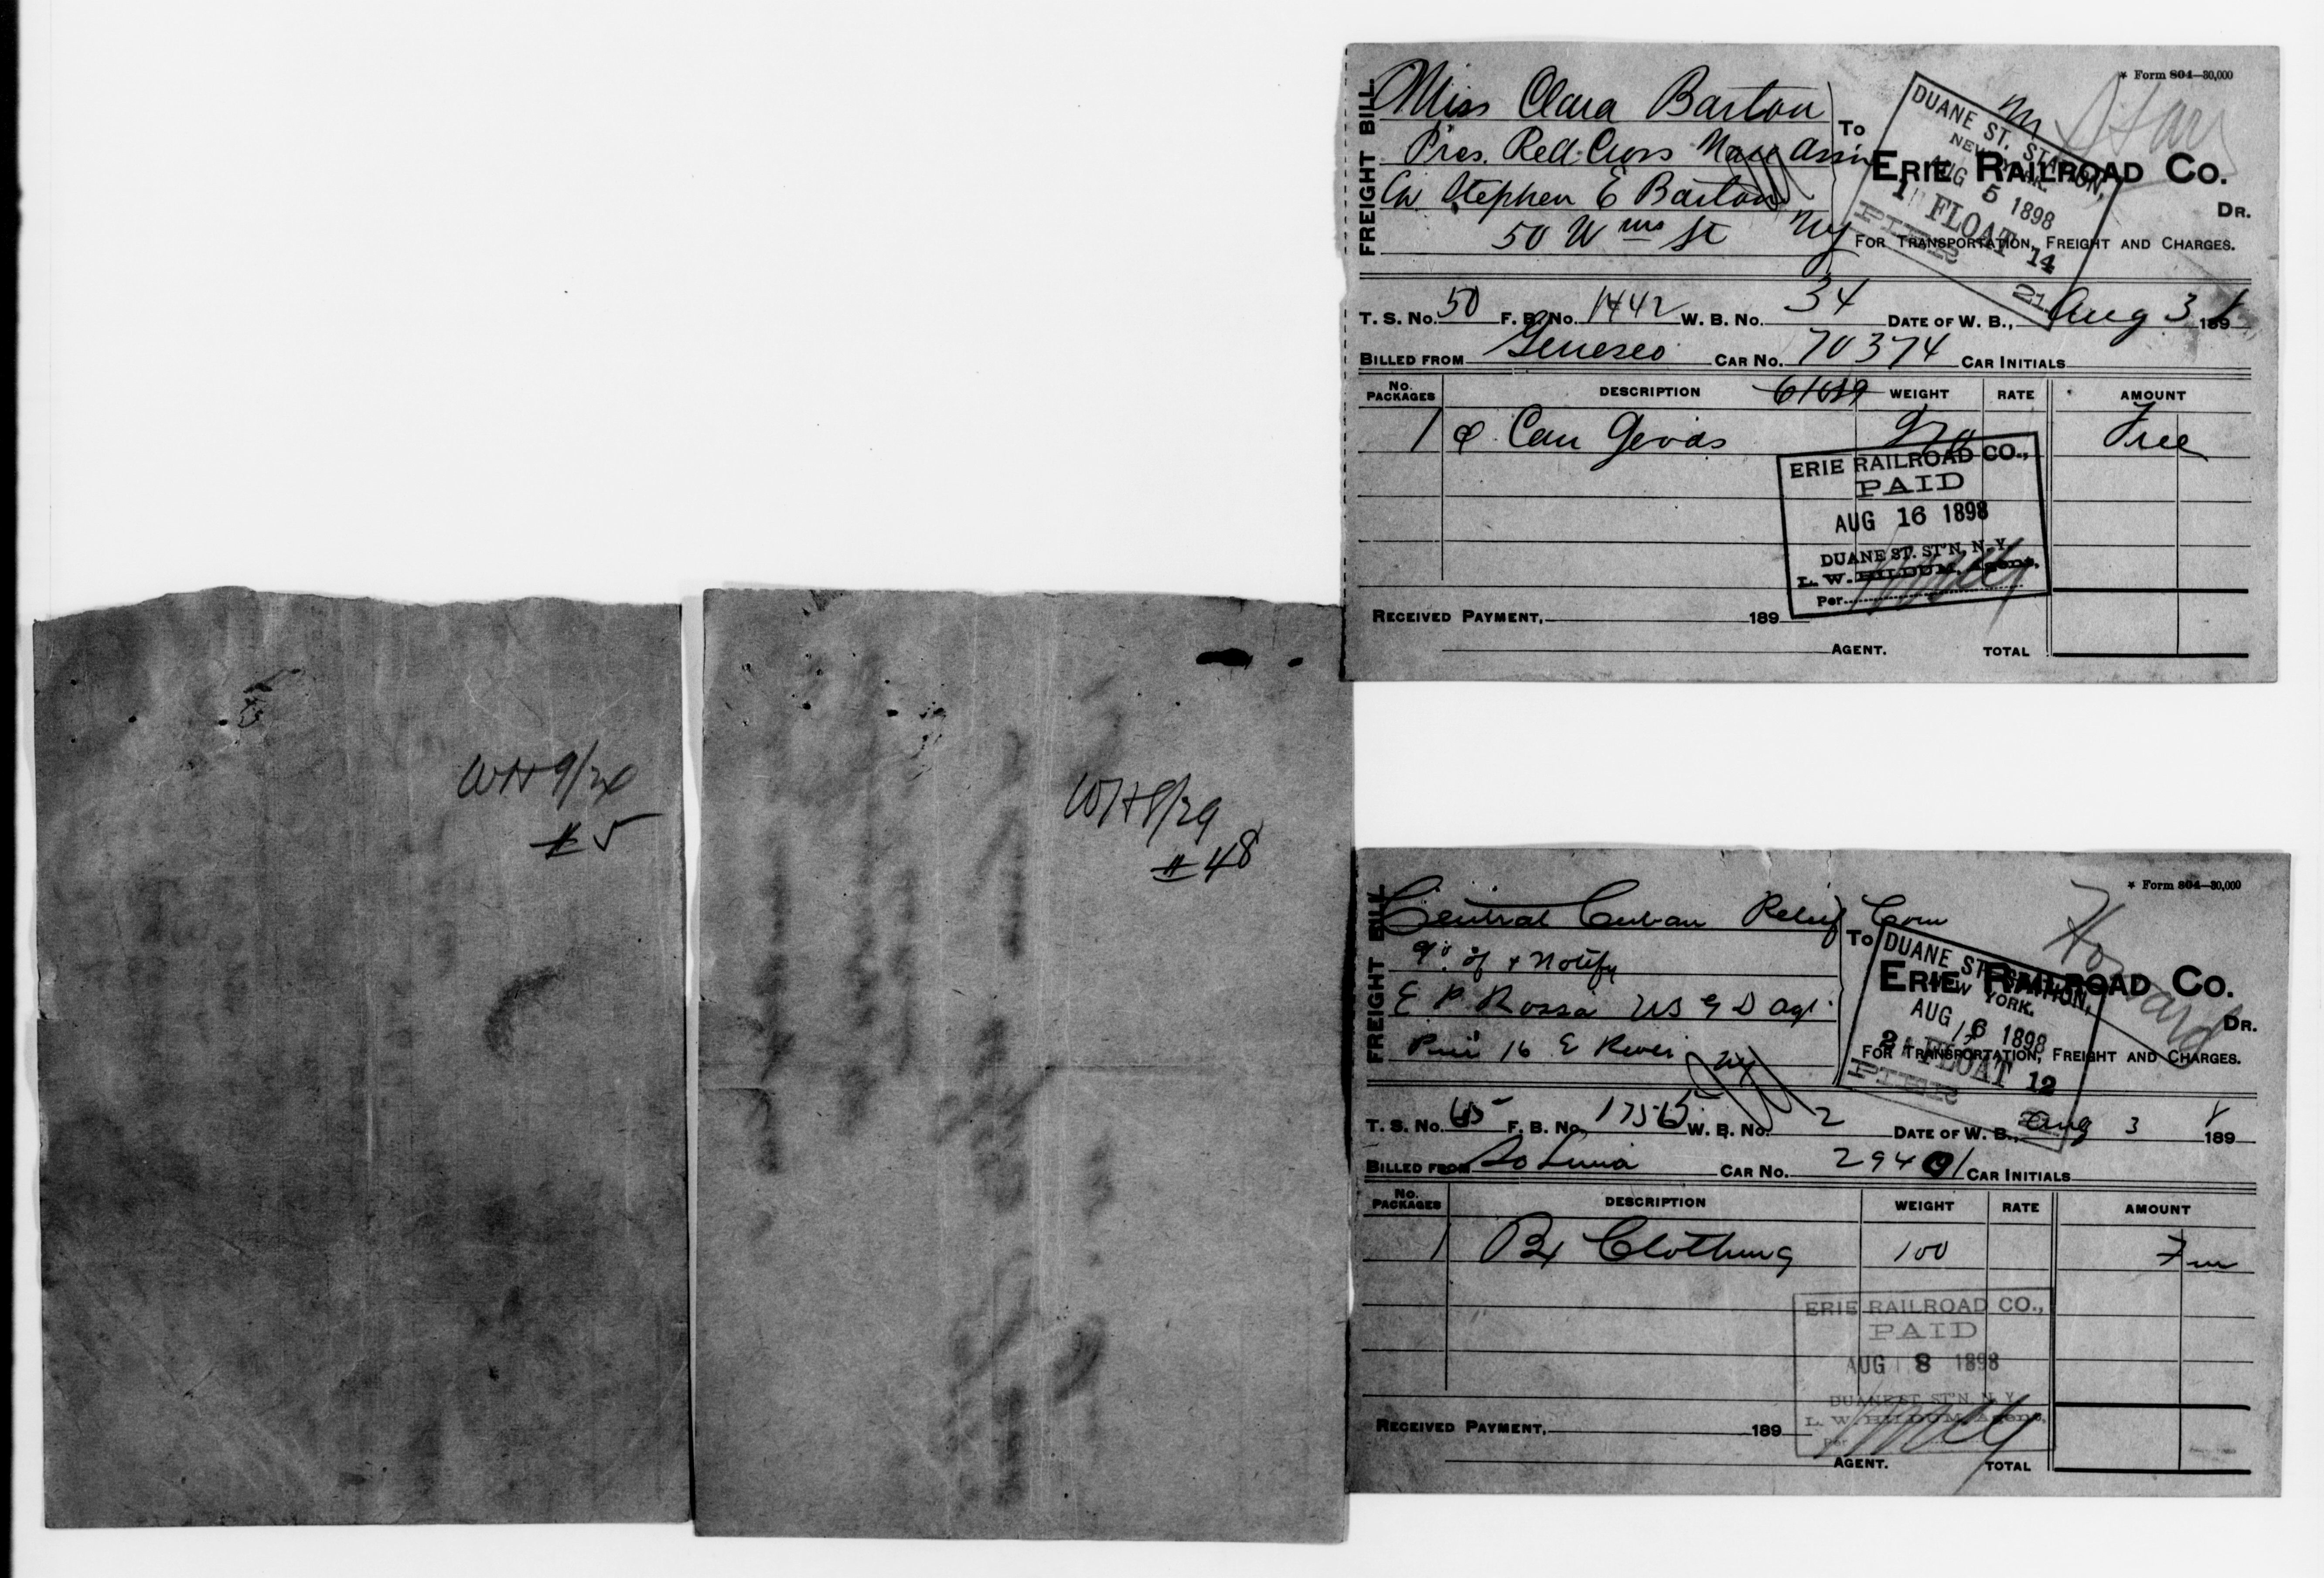 WH 9/20
# 5
WH 8/29
# 48
* Form 804—30,000
FREIGHT BILL.
Miss Clara Barton
Pres. Red Cross Assn
Stephen E Barton
50 Wms St NY
To
ERIE RAILROAD CO.
DR.
FOR TRANSPORTATION, FREIGHT AND CHARGES.
DUANE ST. STATION,
NEW YORK.
AUG 5 1898
1 FLOAT 14
PIER 21
T. S. No. 50 F. B. No. 1442 W. B. No. 34 DATE OF W. B., Aug 3 1898
BILLED FROM Geneseo CAR No. 70374 CAR INITIALS
No. PACKAGES DESCRIPTION WEIGHT RATE AMOUNT
1 Can Goods Free
ERIE RAILROAD CO.,
PAID
AUG 16 1898
DUANE ST. ST'N, N. Y.
L. W. HILDUM, Agent.
Per
RECEIVED PAYMENT, 189
AGENT. TOTAL
* Form 804—30,000
FREIGHT BILL
Central Cuban Relief Com
of + Notify
E P Rossa US G D Agt
Pier 16 E River NY
Howard
To
ERIE RAILROAD CO.
DR.
FOR TRANSPORTATION, FREIGHT AND CHARGES.
DUANE ST. STATION,
NEW YORK.
AUG 6 1898
2 FLOAT 12
PIER
T. S. No. 65 F. B. No. 1756 W. B. No. 2 DATE OF W. B., Aug 3 1898
BILLED FROM So Lima CAR No. 29401 CAR INITIALS
No. PACKAGES DESCRIPTION WEIGHT RATE AMOUNT
1 Bx Clothing 100 Free
ERIE RAILROAD CO.,
PAID
AUG 8 1898
DUANE ST. ST'N, N. Y.
L. W. HILDUM, Agent.
Per
RECEIVED PAYMENT, 189
AGENT. TOTAL